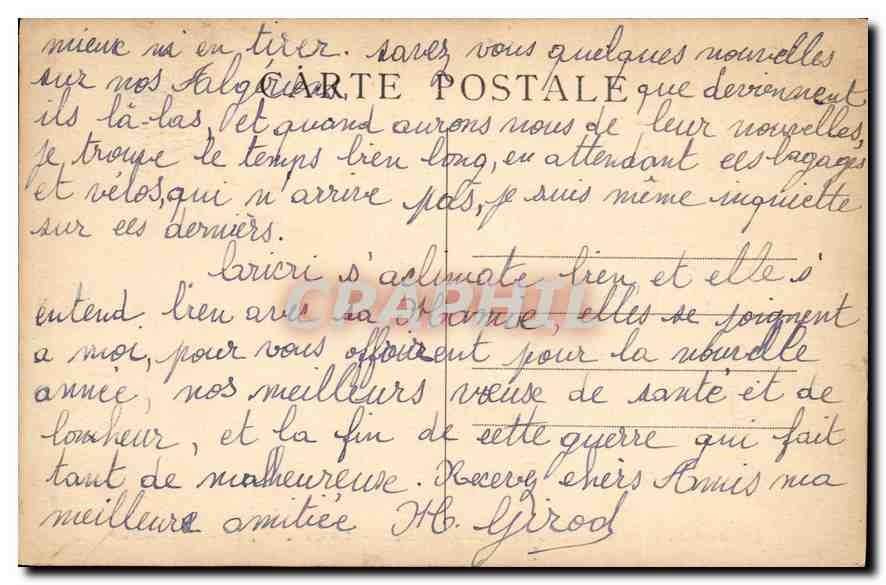 mieux ni en tirer. savez vous quelques nouvelles
CARTE POSTALE
sur nos Algériens, que deviennent
ils là-bas, et quand aurons nous de leur nouvelles,
je trouve le temps bien long, en attendant ces bagages
et vélos, qui n'arrive pas, je suis même inquiette
sur ces derniers.
Cricri s'aclimate bien et elle s'
entend bien avec sa Maman, elles se joignent
a moi, pour vous offrirent pour la nouvelle
année, nos meilleurs vœuse de santé et de
bonheur, et la fin de cette guerre qui fait
tant de malheureuse. Recevez chers Amis ma
meilleure amitiée H. Girod
CRAPHIL